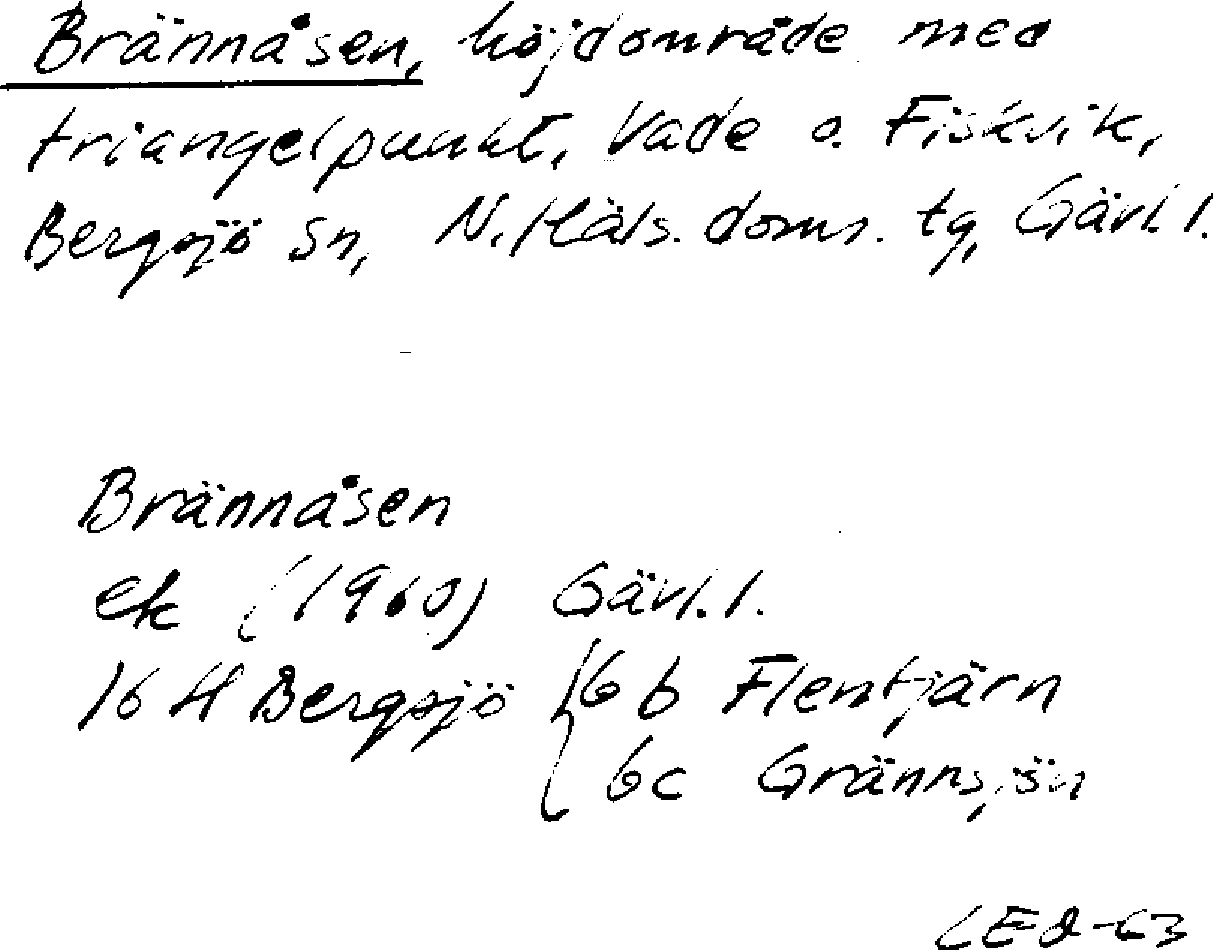 Brännåsen, höjdområde med
triangelpunkt, Vade o. Fiskvik,
Bergsjö sn, N. Häls. doms. tg, Gävl. l.
Brännåsen
ek (1960) Gävl. l.
16 H Bergsjö { 6 b Flentjärn
6c Grännsjön